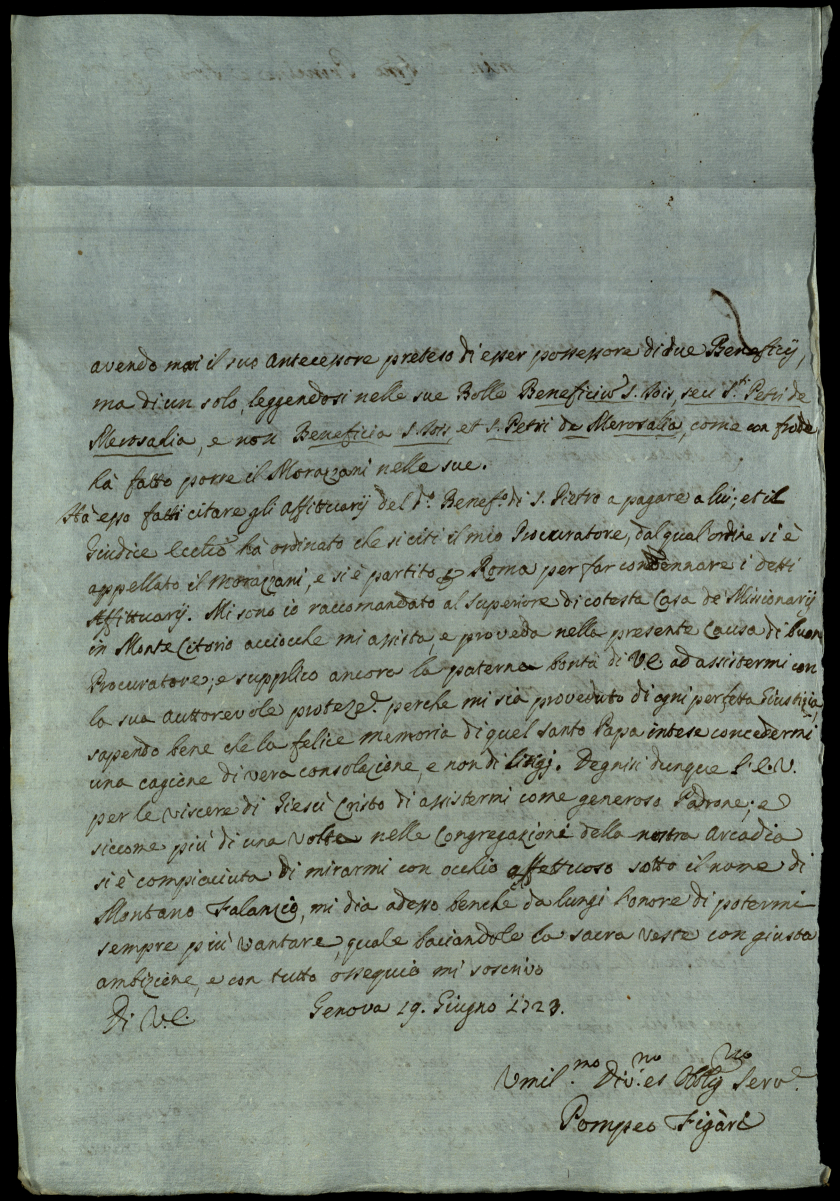 avendo mai il suo Antecessore preteso di esser possessore di due Beneficij,
ma di un solo, leggendosi nelle sue Bolle Beneficiu S. Jois, seu S.ti Petri de
Merosalia, e non Beneficia S. Jois, et S. Petri de Merosalia, come con frode
hà fatto porre il Morazzani nelle sue.
Hà esso fatti citare gli Affittuarij del d.o Benef.o di S. Pietro a pagare a lui; et il
Giudice hà ordinato che si citi il mio Procuratore, dal qual ordine si è
appellato il Morazzani, e si è partito Roma per far condennare i detti
Affittuarij. Mi sono io raccomandato al Superiore di cotesta Casa de Missionarij
in Monte Citorio acciocche mi assista, e proveda nella presente Causa di buon
Procuratore; e supplico ancora la paterna bontà di V.E. ad assistermi con
la sua auttorevole protez.e perche mi sia proveduto di ogni perfetta Giustizia,
sapendo bene che la felice memoria di quel santo Papa intese concedermi
una cagione di vera consolazione, e non di litigj. Degnisi dunque l'E.V.
per le viscere di Giesù Cristo di assistermi come generoso Padrone; e
siccome più di una volta nelle Congregazioni della nostra Arcadia
si è compiaciuta di mirarmi con occhio affettuoso sotto il nome di
Montano Falanzio, mi dia adesso benche da lungi l'onore di potermi
sempre più vantare, quale baciandole la sacra veste con giusta
ambizione, e con tutto ossequio mi soscrivo
Di V.E. Genova 19. Giugno 1723.
Umil.mo Div.mo es Obblig.mo Serv.e
Pompeo Figàri